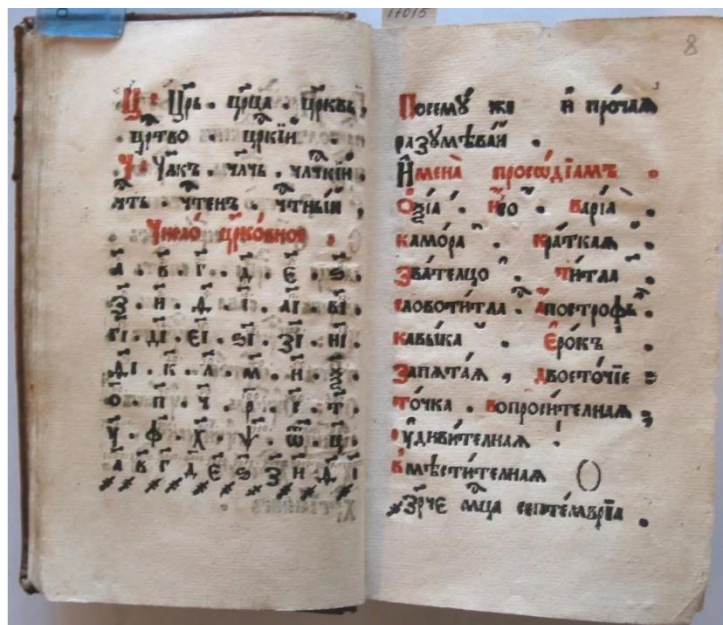 17016
Ц: Цр҃ь . цр҃ца . цр҃квь,
. цр҃тво цр҃кїи .
Ч: Чл҃къ . чл҃чь . чл҃чкїи .
чт҃ь . чт҃енъ . чт҃ный ,
Число̀ цр҃ко́вное .
а҃ . в҃ . г҃ . д҃ . є҃ . ѕ҃
з҃ . и҃ . ѳ҃ . і҃ . аі҃ . ві҃
гі҃ . ді҃ . єі҃ . ѕі҃ . зі҃ . иі҃
ѳі҃ . к҃ . л҃ . м҃ . н҃ . ѯ҃
о҃ . п҃ . ч҃ . р҃ . с҃ . т҃
у҃ . ф҃ . х҃ . ѱ҃ . ѿ҃ . ц҃
8
Посемꙋ́ же и҆ про́чаѧ
разꙋмѣва́й .
И҆мена̀ просѡді́амъ .
Ѻ҆ѯі́а . И҆со . Варі́а .
камо́ра . Кра́ткаѧ .
Зва́телцо . Ти́тла .
словоти́тла . А҆построфъ .
кавы́ка . Є҆ро́къ .
Запѧта́ѧ , двосто́чїе :
то́чка . вопроси́телнаѧ ;
ᲂу҆диви́телнаѧ !
вмѣсти́телнаѧ ()
мц҃а септе́мврїа .